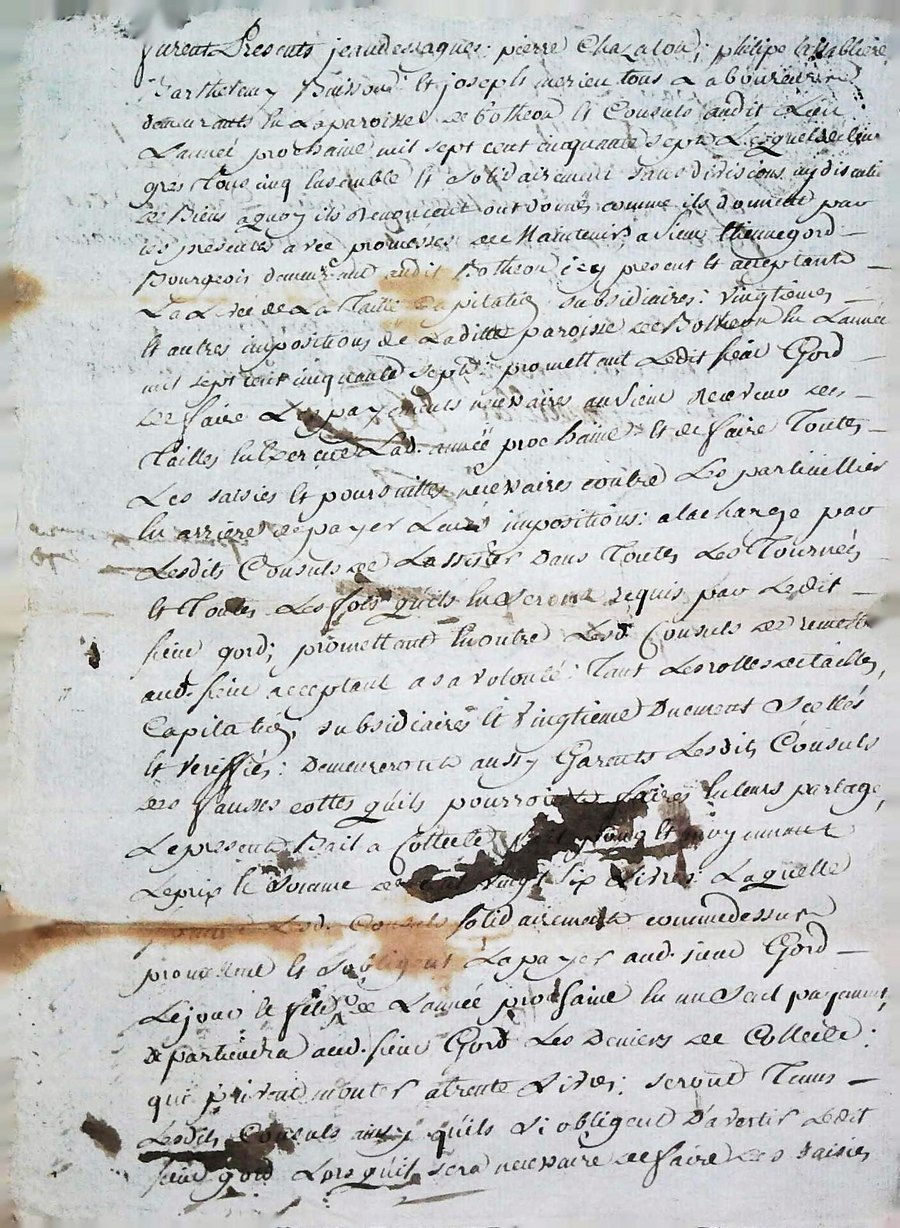 furent Presents jean dessagnes: pierre Chazalon; philipe lasablière
Barthelemy Buisson Et joseph merieu tous Laboureurs
demeurants En La paroisse de botheon Et Consuls audit Lieu
L'année prochaine mil sept cent cinquante sept Lesquels de leur
gres tous cinq Ensemble Et Solidairement sans division ny discution
de Biens aquoy ils renoncent ont donné comme ils donnent par
ces presentes avec promesses de Maintenir a sieur Etienne gord
Bourgeois demeurant audit Botheon icy present Et acceptant
La Levée de La Taille Capitation subsidiaires: vingtiemes
Et autres impositions de Laditte paroisse de Botheon En L'année
mil sept cent cinquante sept: promettant Ledit sieur Gord
de faire Les payements necessaires au sieur receveur des
Tailles En Exercice Lad. année prochaine Et de faire Toutes
Les saisies Et poursuittes necessaires contre Les particulliers
En arriere de payer Leurs impositions: a la charge par
Lesdits Consuls de L'assister dans Toutes Les Tournées
Et Toutes Les fois qu'ils En seront requis par Ledit
sieur gord; promettant En outre Lesd. Consuls de remettre
aud. sieur acceptant a sa volonté: Tant Les rolles de tailles,
Capitation, subsidiaires Et vingtieme Duement Scellés
Et veriffiés: Demeureront aussy Garents Lesdits Consuls
des fausses cottes qu'ils pourroient faire En leurs partage,
Le present Bail a Collecte Et moyennant
Le prix Et Somme de vingt six Livres: Laquelle
Lesd. Consuls solidairement comme dessus
promettent Et s'obligent La payer aud. sieur Gord
Le jour Et fête de L'année prochaine En un seul payement,
appartiendra aud. sieur Gord Les Deniers de Collecte:
qui monter a trente Livres: seront Tenus
Lesdits Consuls aussy qu'ils s'obligent D'avertir Ledit
sieur gord Lorsqu'il sera necessaire de faire des saisies